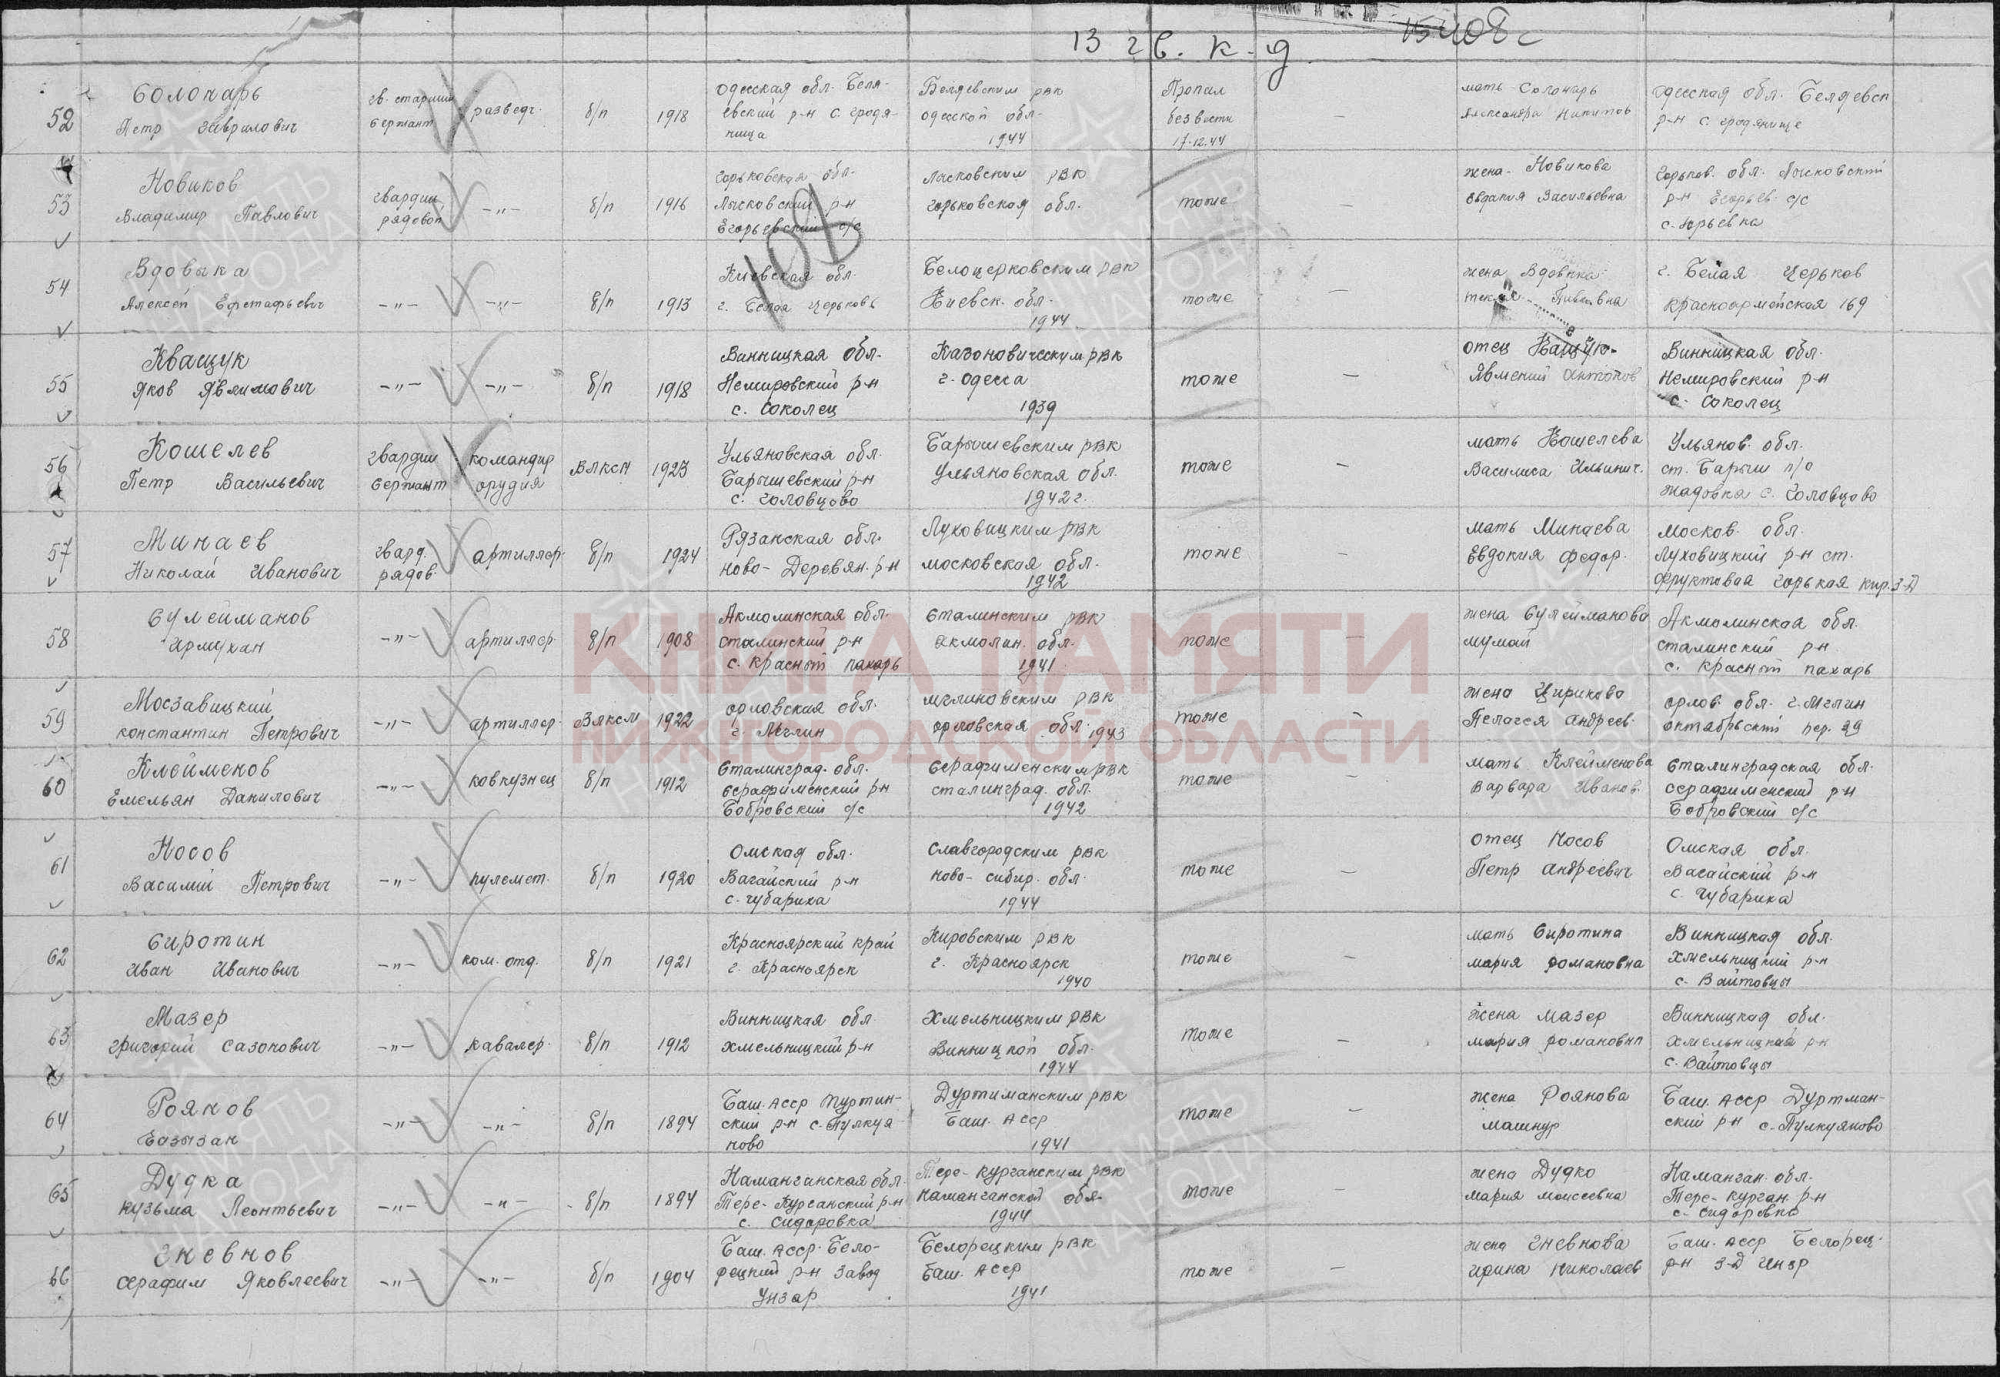 13 гв. к. д.
15408с
108
52
Солонарь
Петр Гаврилович
гв. старший
сержант
развед.
б/п
1918
Одесская обл. Беля-
евский р-н с. Градя-
ница
Беляевским РВК
Одесской обл.
1944
Пропал
без вести
17.12.44
—
мать Солонарь
Александра
Одесская обл. Беляевск
р-н с. Градянице
53
Новиков
Владимир Павлович
гвардии
рядовой
-"-
б/п
1916
Горьковская обл.
Лысковский р-н
Егорьевский с/с
Лысковским РВК
Горьковская обл.
тоже
—
жена Новикова
Евдокия Васильевна
Горьков. обл. Лысковский
р-н Егорьев. с/с
с. Юрьевка
54
Вдовыка
Алексей Ефстафьевич
-"-
-"-
б/п
1913
Киевская обл.
г. Белая Церковь
Белоцерковским РВК
Киевск. обл.
1944
тоже
—
жена Вдовыка
Павловна
г. Белая Церьков
Красноармейская 169
55
Кващук
Яков Явлимович
-"-
-"-
б/п
1918
Винницкая обл.
Немировский р-н
с. Соколец
Кагоновическим РВК
г. Одесса
1939
тоже
—
отец Кащук
Антонов
Винницкая обл.
Немировский р-н
с. Соколец
56
Кошелев
Петр Васильевич
гвардии
сержант
командир
орудия
ВЛКСМ
1923
Ульяновская обл.
Барышевский р-н
с. Головцово
Барышевским РВК
Ульяновская обл.
1942 г.
тоже
—
мать Кошелева
Василиса Ильинич.
Ульянов. обл.
ст. Барыш п/о
Жадовка с. Головцово
57
Минаев
Николай Иванович
гвард.
рядов.
артиллер.
б/п
1924
Рязанская обл.
Ново-Деревян. р-н
Луховицким РВК
Московская обл.
1942
тоже
—
мать Минаева
Евдокия Федор.
Москов. обл.
Луховицкий р-н ст.
Фруктовая Горькая кир. з-д
58
Сулейманов
Армухан
-"-
артиллер.
б/п
1908
Акмолинская обл.
Сталинский р-н
с. Красный пахарь
Сталинским РВК
Акмолин. обл.
1941
тоже
—
жена Сулейманова
Мумай
Акмолинская обл.
Сталинский р-н
с. Красный пахарь
59
Мосзавицкий
Константин Петрович
-"-
артиллер.
ВЛКСМ
1922
Орловская обл.
г. Мглин
Мглиновским РВК
Орловская обл. 1943
тоже
—
жена Цирикова
Пелагея Андреев.
Орлов. обл. г. Мглин
Октябрьский пер. 29
60
Клейменов
Емельян Данилович
-"-
ковкузнец
б/п
1912
Сталинград. обл.
Серафименский р-н
Бобровский с/с
Серафименским РВК
Сталинград. обл.
1942
тоже
—
мать Клейменова
Варвара Иванов.
Сталинградская обл.
Серафименский р-н
Бобровский с/с
61
Носов
Василий Петрович
-"-
пулемет.
б/п
1920
Омская обл.
Вагайский р-н
с. Чубариха
Славгородским РВК
Ново-сибир. обл.
1944
тоже
—
отец Носов
Петр Андреевич
Омская обл.
Васайский р-н
с. Чубариха
62
Сиротин
Иван Иванович
-"-
ком. отд.
б/п
1921
Красноярский край
г. Красноярск
Кировским РВК
г. Красноярск
1940
тоже
—
мать Сиротина
Мария Романовна
Винницкая обл.
Хмельницкий р-н
с. Вайтовцы
63
Мазер
Григорий Сазонович
-"-
кавалер.
б/п
1912
Винницкая обл.
Хмельницкий р-н
Хмельницким РВК
Винницкой обл.
1944
тоже
—
жена Мазер
Мария Романовна
Винницкая обл.
Хмельницкий р-н
с. Вайтовцы
64
Роянов
Базызан
-"-
-"-
б/п
1894
Баш. АССР Пуртин-
ский р-н с. Пулкуя-
ново
Дуртиманским РВК
Баш. АССР
1941
тоже
—
жена Роянова
Машнур
Баш. АССР Дуртман-
ский р-н с. Пулкуяново
65
Дудка
Кузьма Леонтьевич
-"-
-"-
б/п
1894
Наманганская обл.
Тере-Курганский р-н
с. Сидоровка
Тере-Курганским РВК
Наманганской обл.
1944
тоже
—
жена Дудко
Мария Моисеевна
Наманган. обл.
Тере-Курган. р-н
с. Сидоровка
66
Гневнов
Серафим Яковлевич
-"-
-"-
б/п
1904
Баш. АССР Бело-
рецкий р-н завод
Унзар
Белорецким РВК
Баш. АССР
1941
тоже
—
жена Гневнова
Ирина Николаев
Баш. АССР Белорец.
р-н з-д Инзр
КНИГА ПАМЯТИ
НИЖЕГОРОДСКОЙ ОБЛАСТИ
ПАМЯТЬ
НАРОДА